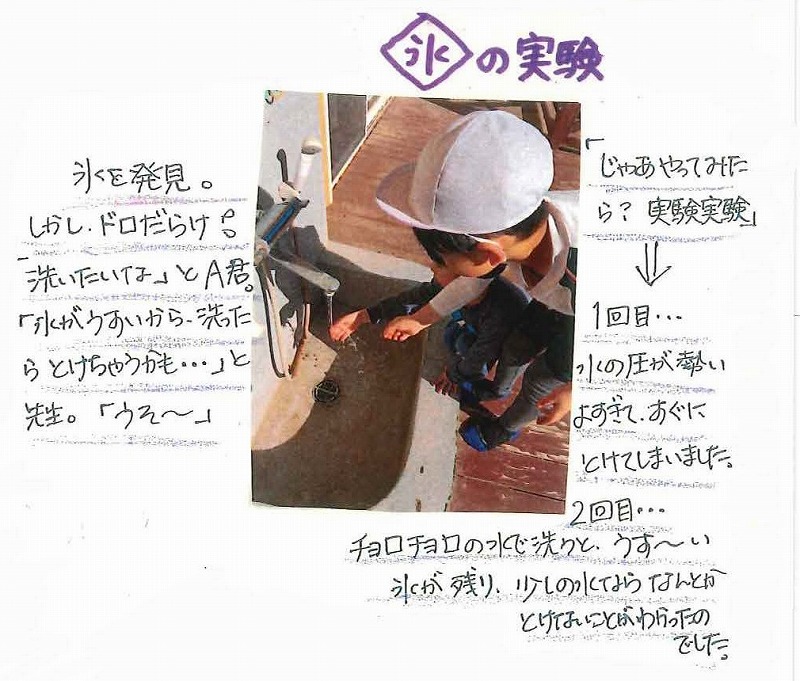 氷の実験
氷を発見。
しかし、ドロだらけ!。
「洗いたいな」とA君。
「氷がうすいから、洗った
らとけちゃうかも…」と
先生。「うそ〜」
「じゃあやってみた
ら? 実験実験」
1回目…
水の圧が勢い
よすぎて、すぐに
とけてしまいました。
2回目…
チョロチョロの水で洗うと、うす〜い
氷が残り、少しの水でなら なんとか
とけないことがわかったの
でした。